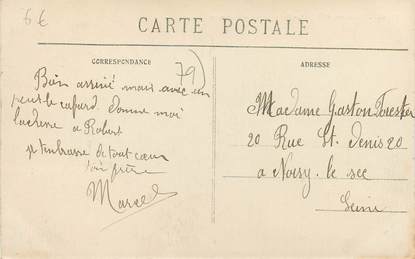 6€
CARTE POSTALE
CORRESPONDANCE
79)
Bien arrivé mais avec un
petit cafard. Donne moi
a Robert
je t'embrasse de tout cœur
ton frère
Marcel
ADRESSE
Madame Gaston Forestier
20 Rue St. Denis 20
a Noisy. le sec
Seine